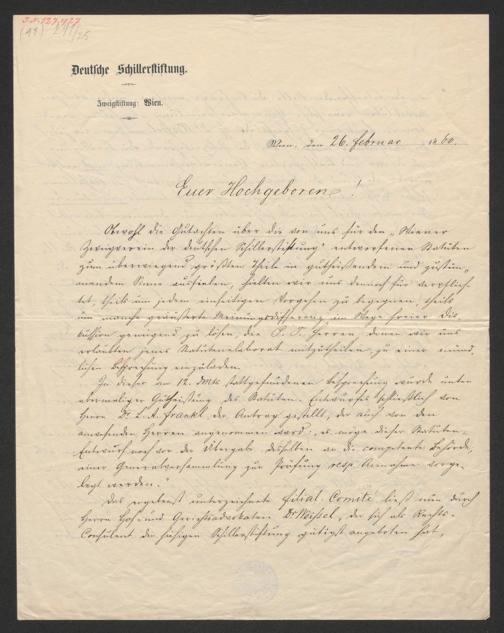 Deutsche Schillerstiftung.
Zweigstiftung: Wien.
Wien, den 26. Februar 1860.
Euer Hochgeboren!
Obwohl die Gutachten über die von uns für den „Wiener
Zweigverein der deutschen Schillerstiftung" entworfenen Statuten
zum überwiegend größten Theile in gutheißendem und zustim-
mendem Sinne ausfielen, hielten wir uns dennoch für verpflich-
tet, theils um jedem einseitigen Vorgehen zu begegnen, theils
um manche geäußerte Meinungsdifferenz im Wege freier Dis-
kussion genügend zu lösen, die P. T. Herren, denen wir uns
erlaubten jenes Statutenelaborat mitzutheilen, zu einer münd-
lichen Besprechung einzuladen.
In dieser am 12. dMts stattgefundenen Besprechung wurde unter
abermaliger Gutheißung des Statuten-Entwurfes schließlich von
Herrn Dr. L. A. Frankl der Antrag gestellt, der auch von den
anwesenden Herren angenommen ward: es möge dieser Statuten-
Entwurf noch vor der Übergabe desselben an die competente Behörde,
einer Generalversammlung zur Prüfung resp. Annahme vorge-
legt werden.
Das ergebenst unterzeichnete Filial-Comité ließ nun durch
Herrn Hof- und Gerichtsadvokaten Dr.
der sich als Rechts-
Consulent der hiesigen Schillerstiftung gütigst angeboten hat,